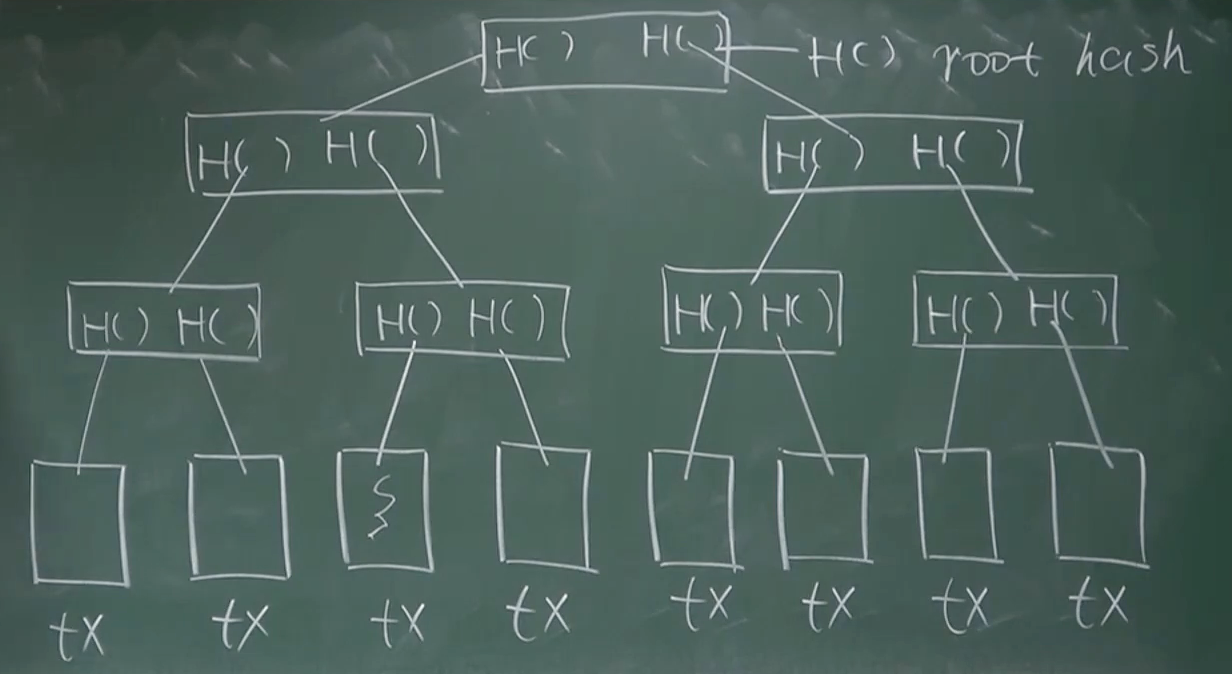 H( ) H( ) H( ) root hash
H( ) H( ) H( ) H( )
H( ) H( ) H( ) H( ) H( ) H( ) H( ) H( )
tx tx tx tx tx tx tx tx